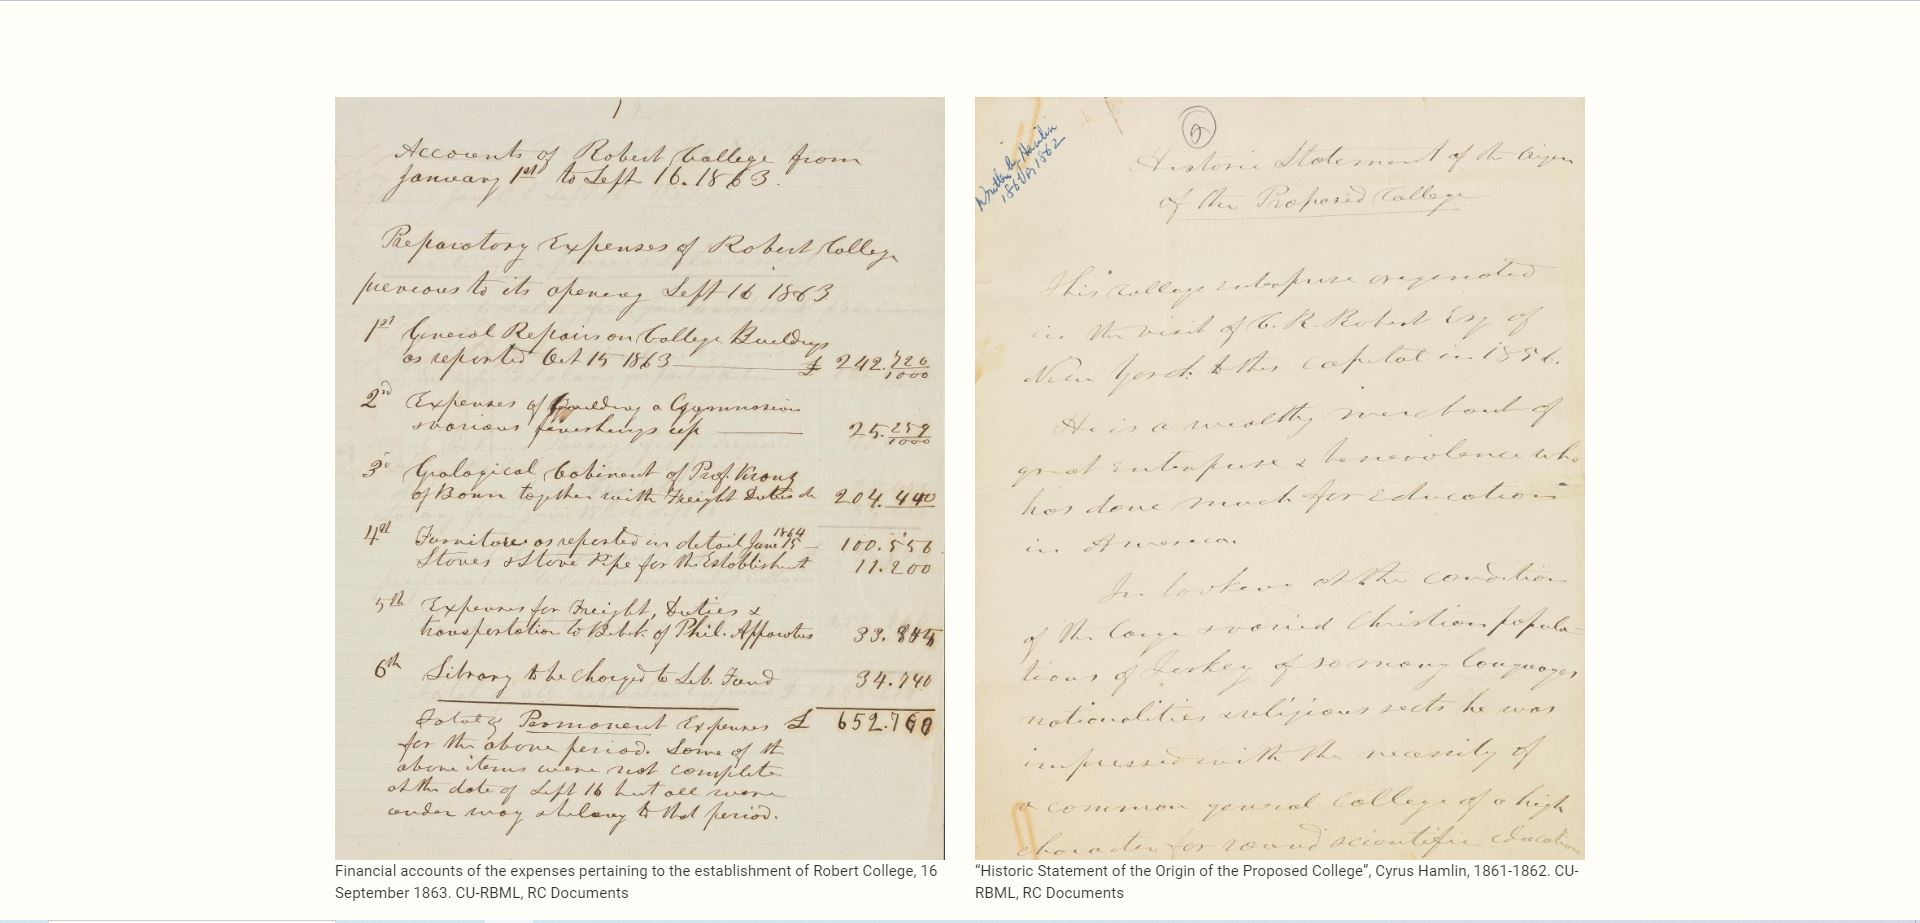 Accounts of Robert College from
January 1st to Sept 16. 1863.
Preparatory Expenses of Robert College
previous to its opening Sept 16 1863
1st General Repairs on College Buildings
as reported Oct 15 1863 £ 242.720/1000
2nd Expenses of building a Gymnasium
& various finishings up 25.259/1000
3d Geological Cabinet of Prof. Krantz
of Bonn together with Freight Duties &c 204.440
4th Furniture as reported in detail June 15 1864 100.556
Stoves & Stove Pipe for the Establishment 11.200
5th Expenses for Freight, Duties &
transportation to Bebek of Phil. Apparatus 33.844
6th Library to be charged to Lib. Fund 34.740
Total of Permanent Expenses £ 652.760
for the above period. Some of the
above items were not complete
at the date of Sept 16 but all were
under way & belong to that period.
Financial accounts of the expenses pertaining to the establishment of Robert College, 16
September 1863. CU-RBML, RC Documents
2
Written by Hamlin
1861 or 1862
Historic Statement of the Origin
of the Proposed College
This college enterprise originated
in the visit of C. R. Robert Esq of
New York to this capital in 1856.
He is a wealthy merchant of
great enterprise & benevolence who
has done much for education
in America.
In looking at the condition
of the large & varied Christian popula-
tions of Turkey of so many languages
nationalities & religious sects he was
impressed with the necessity of
a common general College of a high
character for sound scientific education
“Historic Statement of the Origin of the Proposed College”, Cyrus Hamlin, 1861-1862. CU-
RBML, RC Documents